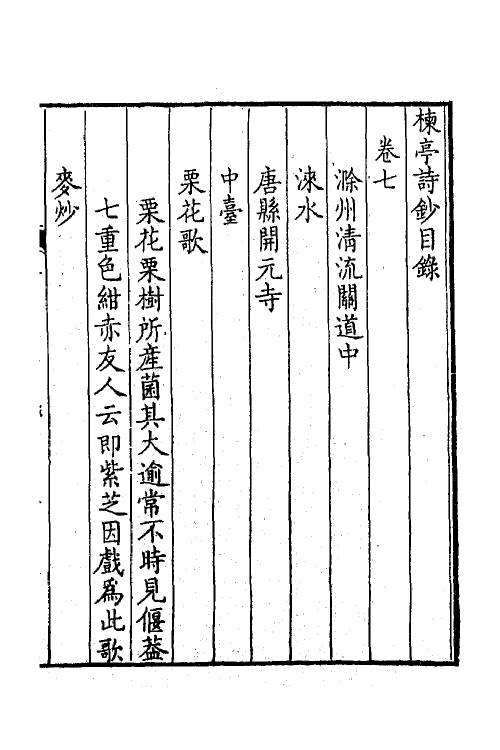 楝亭詩鈔目錄
卷七
滁州清流關道中
淶水
唐縣開元寺
中臺
栗花歌
栗花栗樹所產菌其大逾常不時見偃蓋
七重色紺赤友人云即紫芝因戲爲此歌
麥炒